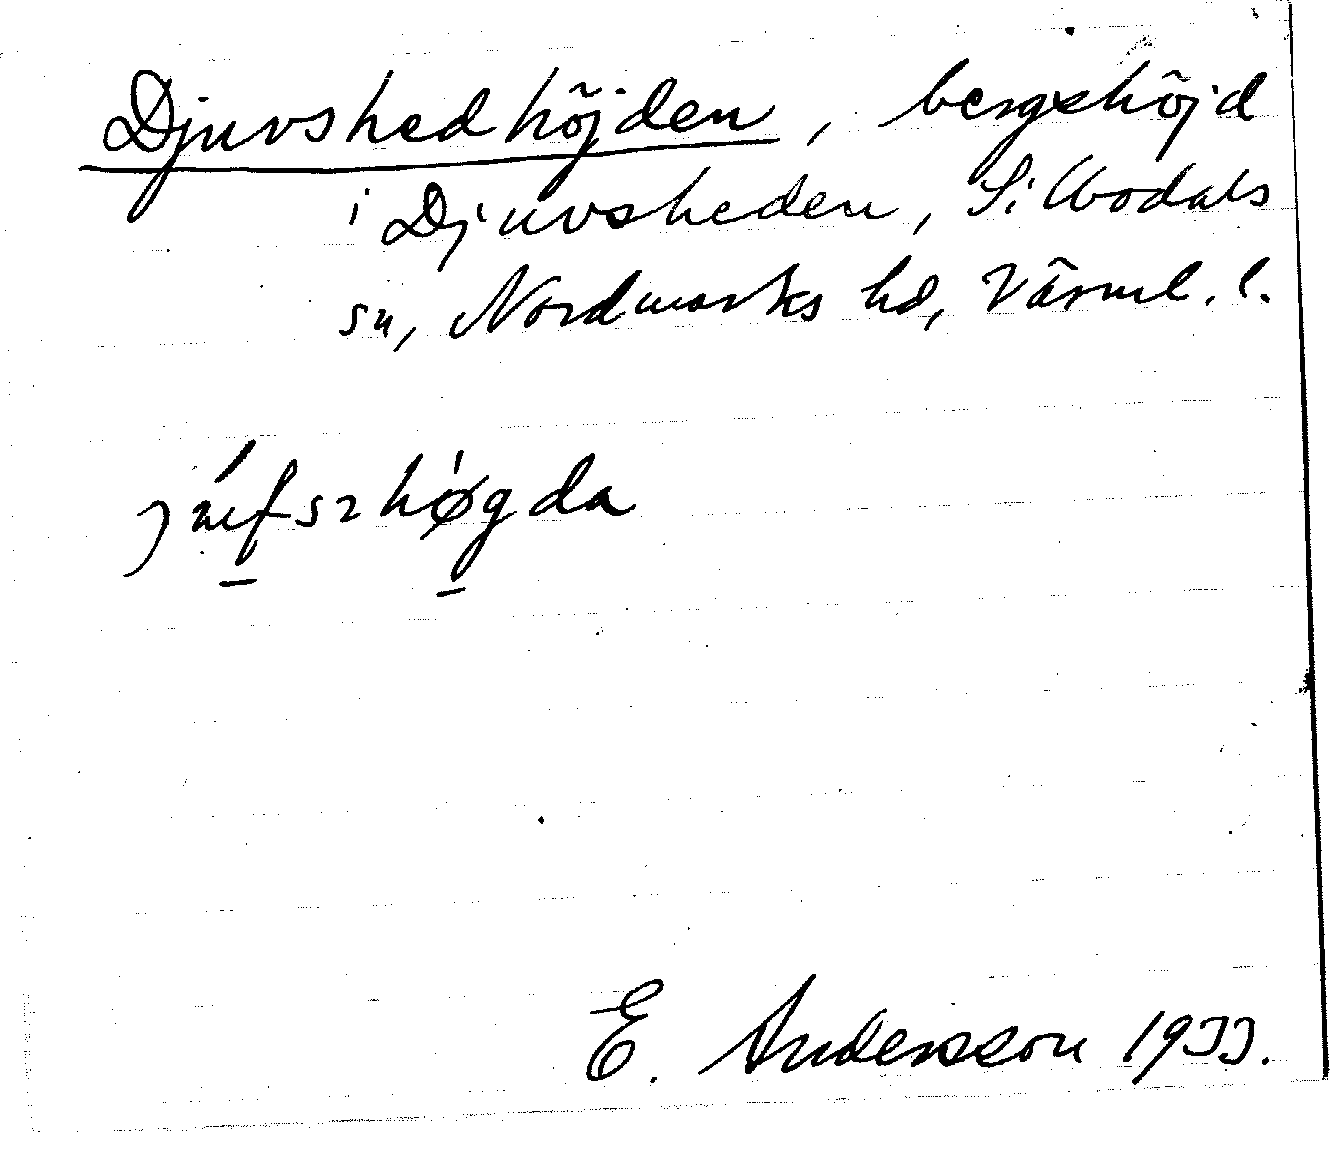 Djuvshedhöjden, bergshöjd
i Djuvsheden, Sillbodals
sn, Nordmarks hd, Värml. l.
E. Andersson 1933.